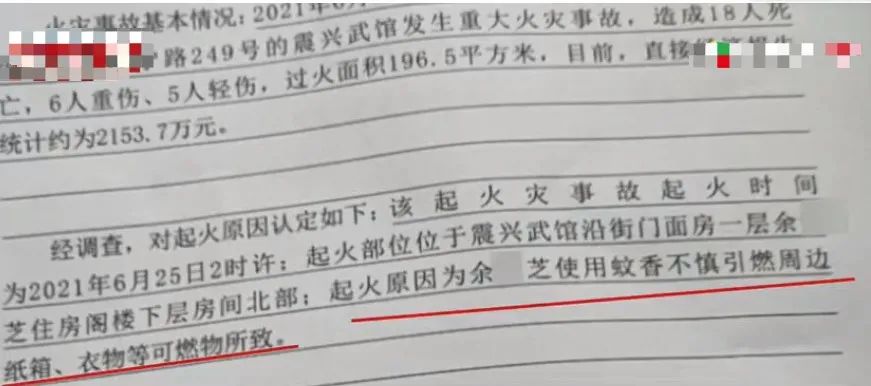 火灾事故基本情况：2021年6月
路249号的震兴武馆发生重大火灾事故，造成18人死
亡，6人重伤、5人轻伤，过火面积196.5平方米，目前，直接经济损失
统计约为2153.7万元。
经调查，对起火原因认定如下：该起火灾事故起火时间
为2021年6月25日2时许；起火部位位于震兴武馆沿街门面房一层余
芝住房阁楼下层房间北部；起火原因为余 芝使用蚊香不慎引燃周边
纸箱、衣物等可燃物所致。